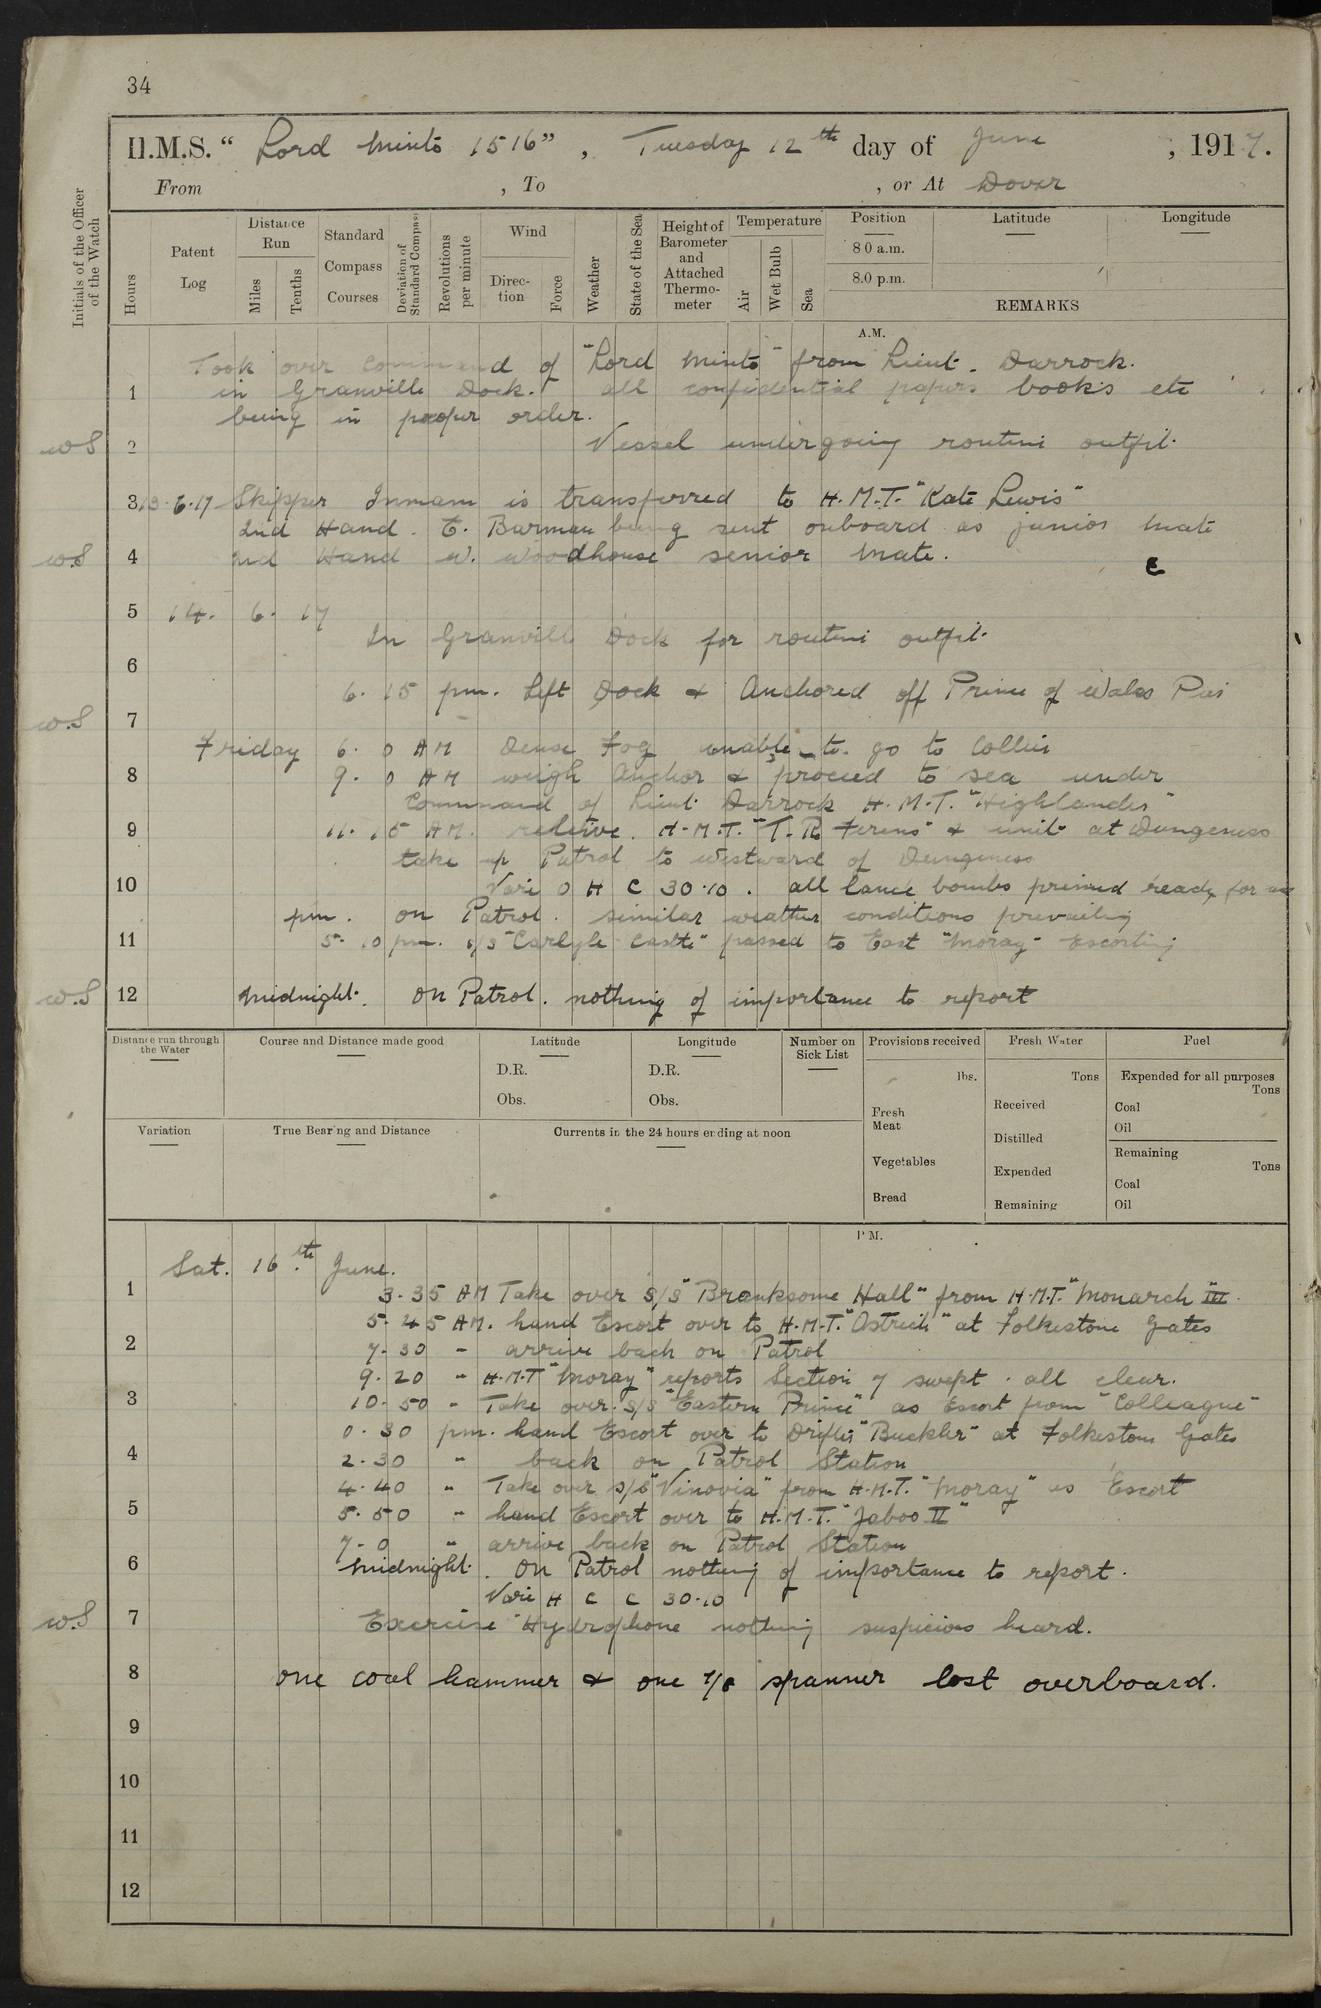 34
H.M.S. “ Lord Minto 1516” , Tuesday 12th day of June , 1917.
From , To , or At Dover
Initials of the Officer of the Watch
Hours
Patent Log
Distance Run
Miles
Tenths
Standard Compass Courses
Deviation of Standard Compass
Revolutions per minute
Wind
Direction
Force
Weather
State of the Sea
Height of Barometer and Attached Thermometer
Temperature
Air
Wet Bulb
Sea
Position
Latitude
Longitude
8 0 a.m.
8.0 p.m.
REMARKS
A.M.
Took over command of "Lord Minto" from Lieut. Darrock.
1 in Granville Dock. all confidential papers books etc
being in proper order.
w.S 2 Vessel undergoing routine outfit.
3 13.6.17 Skipper Inmam is transferred to H.M.T. "Kate Lewis"
2nd Hand. E. Burman being sent onboard as junior mate
w.S 4 2nd Hand W. Woodhouse senior mate. c
5 14. 6. 17
In Granvill Dock for routine outfit.
6
6. 15 pm. Left Dock & Anchored off Prince of Wales Pier
w.S 7
Friday 6. 0 AM Dense Fog unable to go to Collier
8 9. 0 AM weigh Anchor & proceed to sea under
Command of Lieut Darrock H.M.T. "Highlander"
9 11. 15 AM. relieve. H.M.T. "T.R. Ferens" & unit at Dungeness
take up Patrol to westward of Dungeness
10 Vari O H C 30.10. all lance bombs primed ready for
pm. on Patrol. similar weather conditions prevailing
11 5. 10 pm. s/s "Carlyle Castle" passed to East "Moray" Escorting
w.S 12 Midnight. On Patrol. nothing of importance to report
Distance run through the Water
Course and Distance made good
Latitude
D.R.
Obs.
Longitude
D.R.
Obs.
Number on Sick List
Provisions received
lbs.
Fresh Meat
Vegetables
Bread
Fresh Water
Tons
Received
Distilled
Expended
Remaining
Fuel
Expended for all purposes
Tons
Coal
Oil
Remaining
Tons
Coal
Oil
Variation
True Bearing and Distance
Currents in the 24 hours ending at noon
P.M.
Sat. 16th June.
1 3.35 AM Take over S/S "Branksome Hall" from H.M.T. "Monarch III"
5.45 AM. hand Escort over to H.M.T. "Ostrich" at Folkestone Gates
2 7.30 " arrive back on Patrol
9.20 " H.M.T "Moray" reports Section 7 swept. all clear.
3 10.50 " Take over S/S "Eastern Prince" as Escort from "Colleague"
0.30 pm. hand Escort over to Drifter "Buckler" at Folkestone Gates
4 2.30 " back on Patrol Station
4.40 " Take over s/s "Vinovia" from H.M.T. "Moray" as Escort
5 5.50 " hand Escort over to H.M.T. "Jaboo II"
7.0 " arrive back on Patrol Station
6 Midnight. On Patrol nothing of importance to report.
Vari H C C 30.10
w.S 7 Exercise Hydrophone nothing suspicious heard.
8 one coal hammer & one 7/8 spanner lost overboard.
9
10
11
12